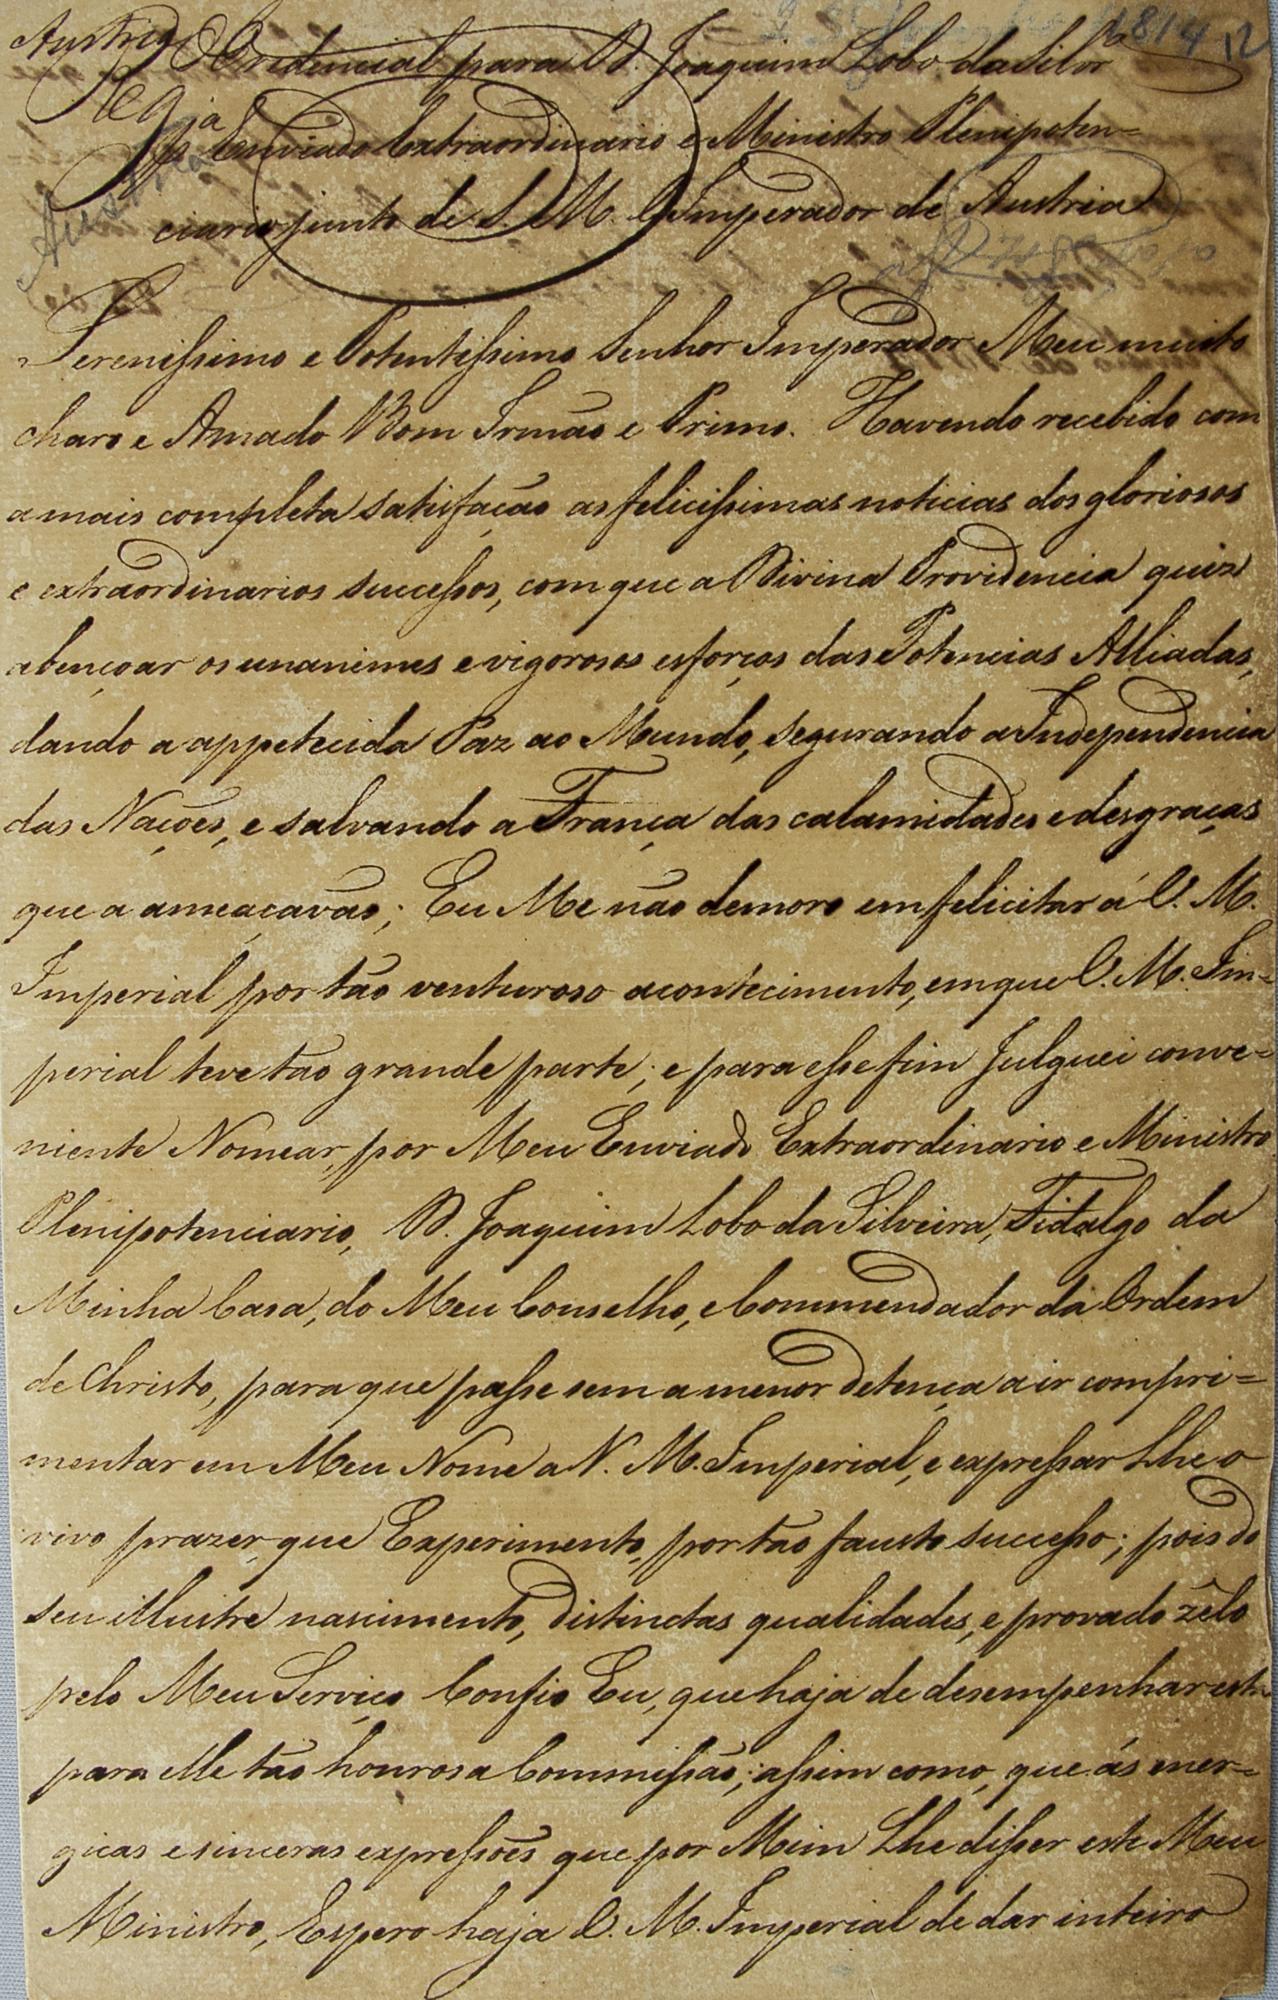 1814 12
Austria Credencial para D. Joaquim Lobo da Silvra
Enviado Extraordinario e Ministro Plenipoten=
ciario junto de S. M. O Imperador de Austria
Austria
Serenissimo e Potentissimo Senhor Imperador Meu muito
charo e Amado Bom Irmão e Primo. Havendo recebido com
a mais completa satisfação as felicissimas noticias dos gloriosos
e extraordinarios successos, com que a Divina Providencia quiz
abençoar os unanimes e vigorosos esforços das Potencias Alliadas,
dando a appetecida Paz ao Mundo, segurando a Independencia
das Nações, e salvando a França das calamidades e desgraças
que a ameaçavão; Eu Me não demoro em felicitar á V. M.
Imperial por tão venturoso acontecimento, em que V. M. Im=
perial teve tão grande parte; e para esse fim Julguei conve=
niente Nomear, por Meu Enviado Extraordinario e Ministro
Plenipotenciario, D. Joaquim Lobo da Silveira, Fidalgo da
Minha Casa, do Meu Conselho, e Commendador da Ordem
de Christo, para que passe sem a menor detença a ir compri=
mentar em Meu Nome a V. M. Imperial, e expressar Lhe o
vivo prazer, que Experimento, por tão fausto successo; pois do
seu illustre nascimento, distinctas qualidades, e provado zêlo
pelo Meu Serviço Confio Eu, que haja de desempenhar esta
para Me tão honrosa Commissão; assim como, que ás ener=
gicas e sinceras expressões que por Mim Lhe disser este Meu
Ministro, Espero haja V. M. Imperial de dar inteiro